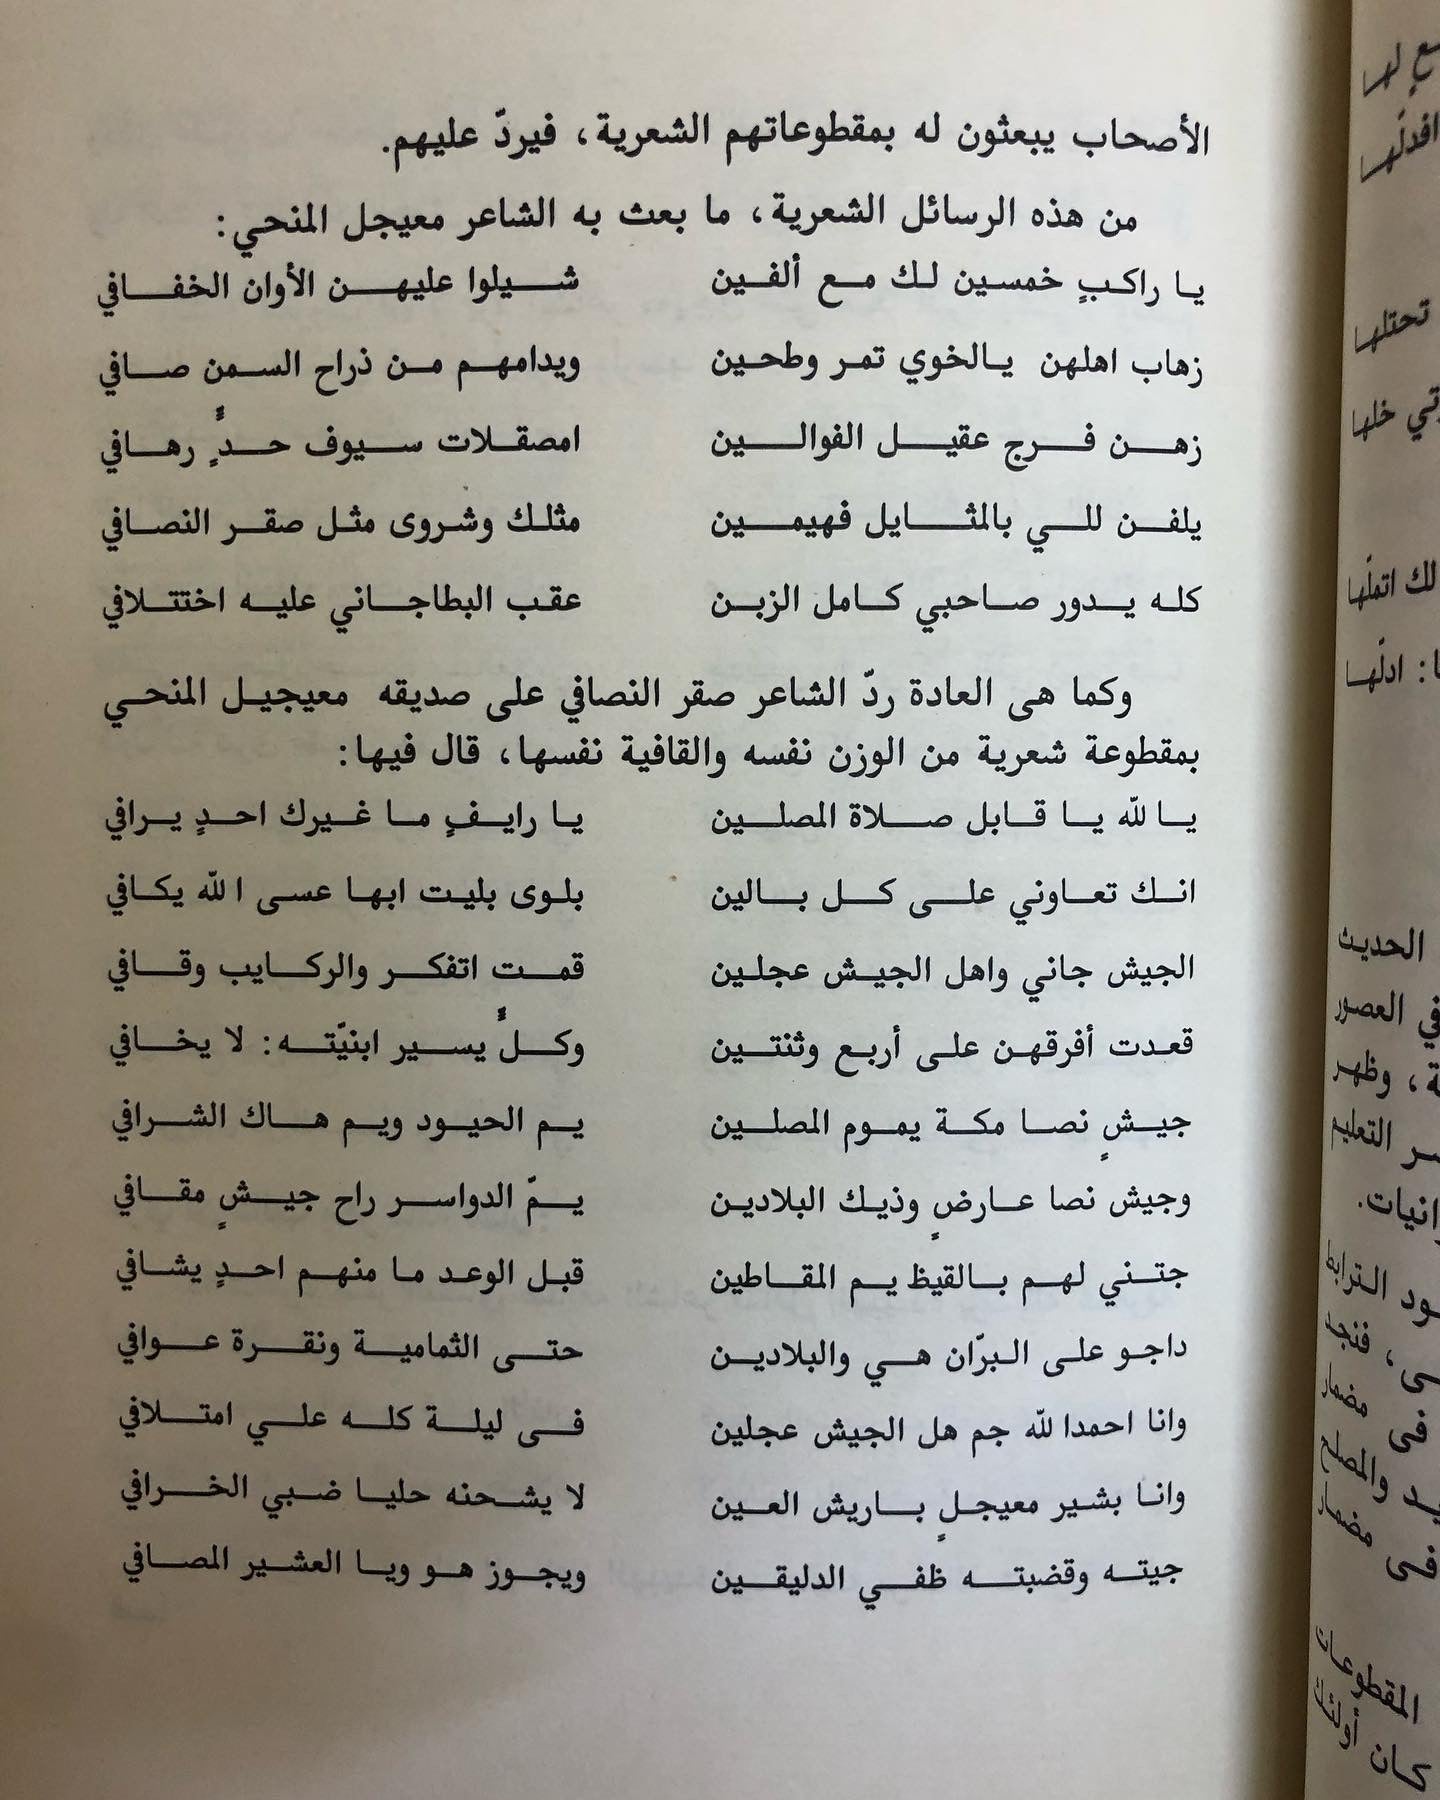 الأصحاب يبعثون له بمقطوعاتهم الشعرية، فيردّ عليهم.
من هذه الرسائل الشعرية، ما بعث به الشاعر معيجل المنحي:
يا راكبٍ خمسين لك مع ألفين شيلوا عليهن الأوان الخفافي
زهاب اهلهن يالخوي تمر وطحين ويدامهم من ذراح السمن صافي
زهن فرج عقيل الفوالين امصقلات سيوف حدٍّ رهافي
يلفن للي بالمثايل فهيمين مثلك وشروى مثل صقر النصافي
كله يدور صاحبي كامل الزين عقب البطاجاني عليه اختتلافي
وكما هى العادة ردّ الشاعر صقر النصافي على صديقه معيجيل المنحي
بمقطوعة شعرية من الوزن نفسه والقافية نفسها، قال فيها:
يا لله يا قابل صلاة المصلين يا رايفٍ ما غيرك احدٍ يرافي
انك تعاوني على كل بالين بلوى بليت ابها عسى الله يكافي
الجيش جاني واهل الجيش عجلين قمت اتفكر والركايب وقافي
قعدت أفرقهن على أربع وثنتين وكلٍّ يسير ابنيّته: لا يخافي
جيشٍ نصا مكة يموم المصلين يم الحيود ويم هاك الشرافي
وجيش نصا عارضٍ وذيك البلادين يمّ الدواسر راح جيشٍ مقافي
جتني لهم بالقيظ يم المقاطين قبل الوعد ما منهم احدٍ يشافي
داجو على البرّان هي والبلادين حتى الثمامية ونقرة عوافي
وانا احمدا لله جم هل الجيش عجلين فى ليلة كله علي امتلافي
وانا بشير معيجلٍ باريش العين لا يشحنه حليا ضبي الخرافي
جيته وقضبته ظفي الدليقين ويجوز هو ويا العشير المصافي
تحتلها
خلها
الحديث
العصور
وظهر
التعليم
الترابط
فنجد
فى مضمار
والمصلح
فى مضمار
المقطوعات
كان أولئك